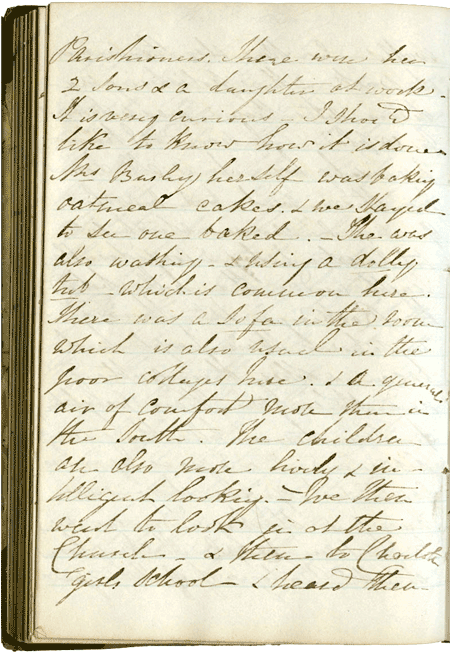 Parishioners. There were her
2 sons & a daughter at work.
It is very curious – I should
like to know how it is done
Mrs Busby herself was baking
oatmeal cakes. & we stayed
to see one baked. – She was
also washing – & using a dolly
tub – which is common here.
There was a Sofa in the room
which is also usual in the
poor cottages here. & a general
air of comfort more than in
the South. The children
are also more lively & in-
telligent looking. – We then
went to look in at the
Church – & then – to
girls school – & heard them